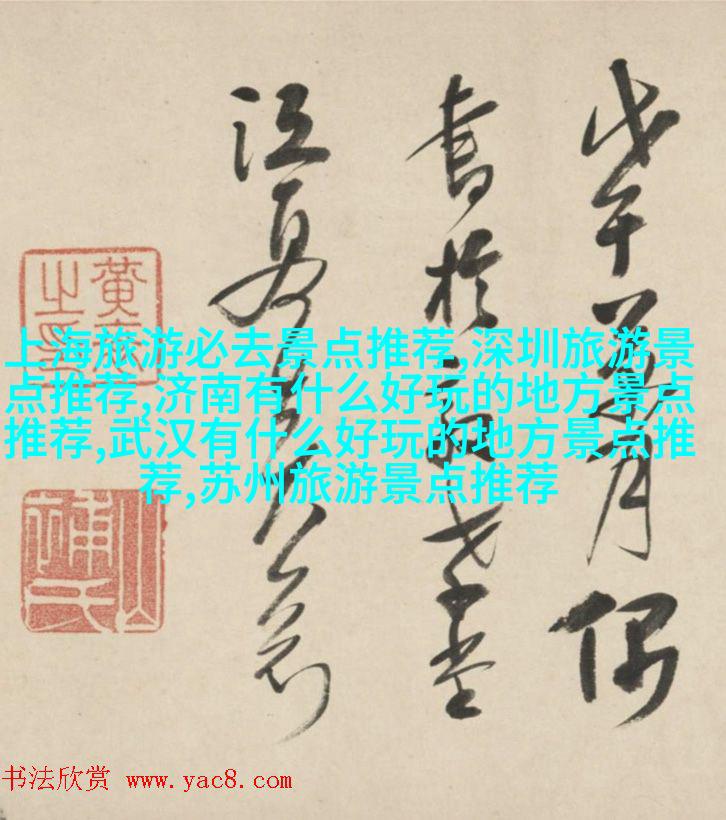 戊午月偶
書於堂
江夏
上海旅游必去景点推荐,深圳旅游景
点推荐,济南有什么好玩的地方景点
推荐,武汉有什么好玩的地方景点推
荐,苏州旅游景点推荐
书法欣赏 www.yac8.com